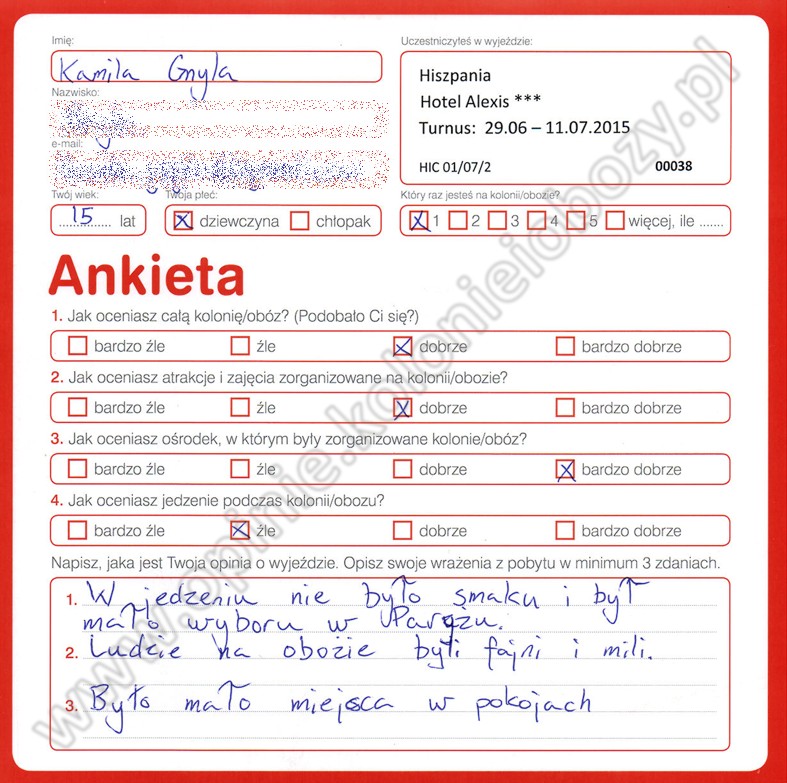 Imię:
Kamila Gnyla
Nazwisko:
e-mail:
Twój wiek:
15 lat
Twoja płeć:
dziewczyna chłopak
Uczestniczyłeś w wyjeździe:
Hiszpania
Hotel Alexis ***
Turnus: 29.06 – 11.07.2015
HIC 01/07/2 00038
Który raz jesteś na kolonii/obozie?
1 2 3 4 5 więcej, ile .......
Ankieta
1. Jak oceniasz całą kolonię/obóz? (Podobało Ci się?)
bardzo źle źle dobrze bardzo dobrze
2. Jak oceniasz atrakcje i zajęcia zorganizowane na kolonii/obozie?
bardzo źle źle dobrze bardzo dobrze
3. Jak oceniasz ośrodek, w którym były zorganizowane kolonie/obóz?
bardzo źle źle dobrze bardzo dobrze
4. Jak oceniasz jedzenie podczas kolonii/obozu?
bardzo źle źle dobrze bardzo dobrze
Napisz, jaka jest Twoja opinia o wyjeździe. Opisz swoje wrażenia z pobytu w minimum 3 zdaniach.
1. W jedzeniu nie było smaku i był
mało wyboru w Paryżu.
2. Ludzie na obozie byli fajni i mili.
3. Było mało miejsca w pokojach
www.opinie.kolonieiobozy.pl